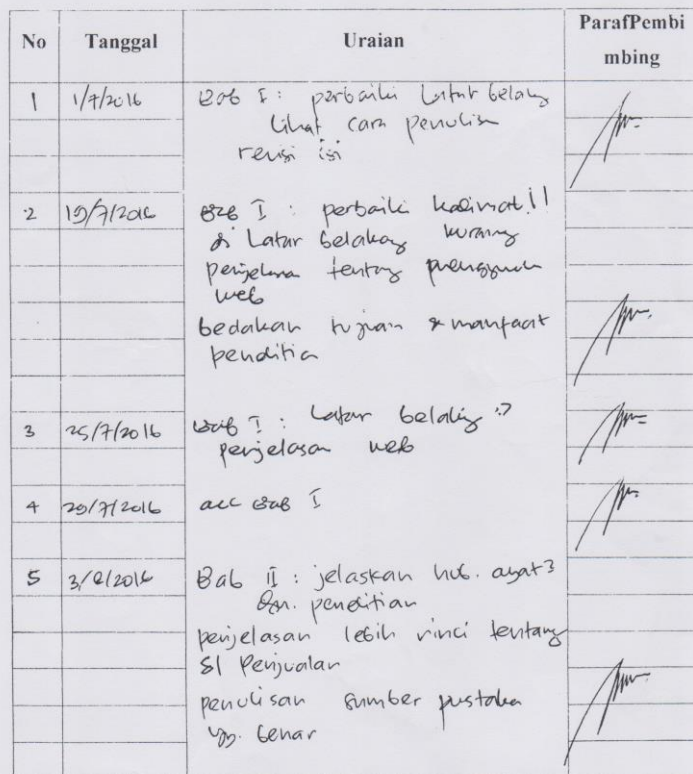 No Tanggal Uraian ParafPembi
mbing
1 1/7/2016 Bab I : perbaiki Latar belakang
Lihat cara penulisan
revisi isi
2 19/7/2016 Bab I : perbaiki kalimat !!
di Latar belakang kurang
penjelasan tentang penggunaan
web
bedakan tujuan & manfaat
penelitian
3 25/7/2016 Bab I : Latar belakang :?
penjelasan web
4 29/7/2016 acc Bab I
5 3/8/2016 Bab II : jelaskan hub. ayat2
dgn. penelitian
penjelasan lebih rinci tentang
SI Penjualan
penulisan sumber pustaka
yg. benar